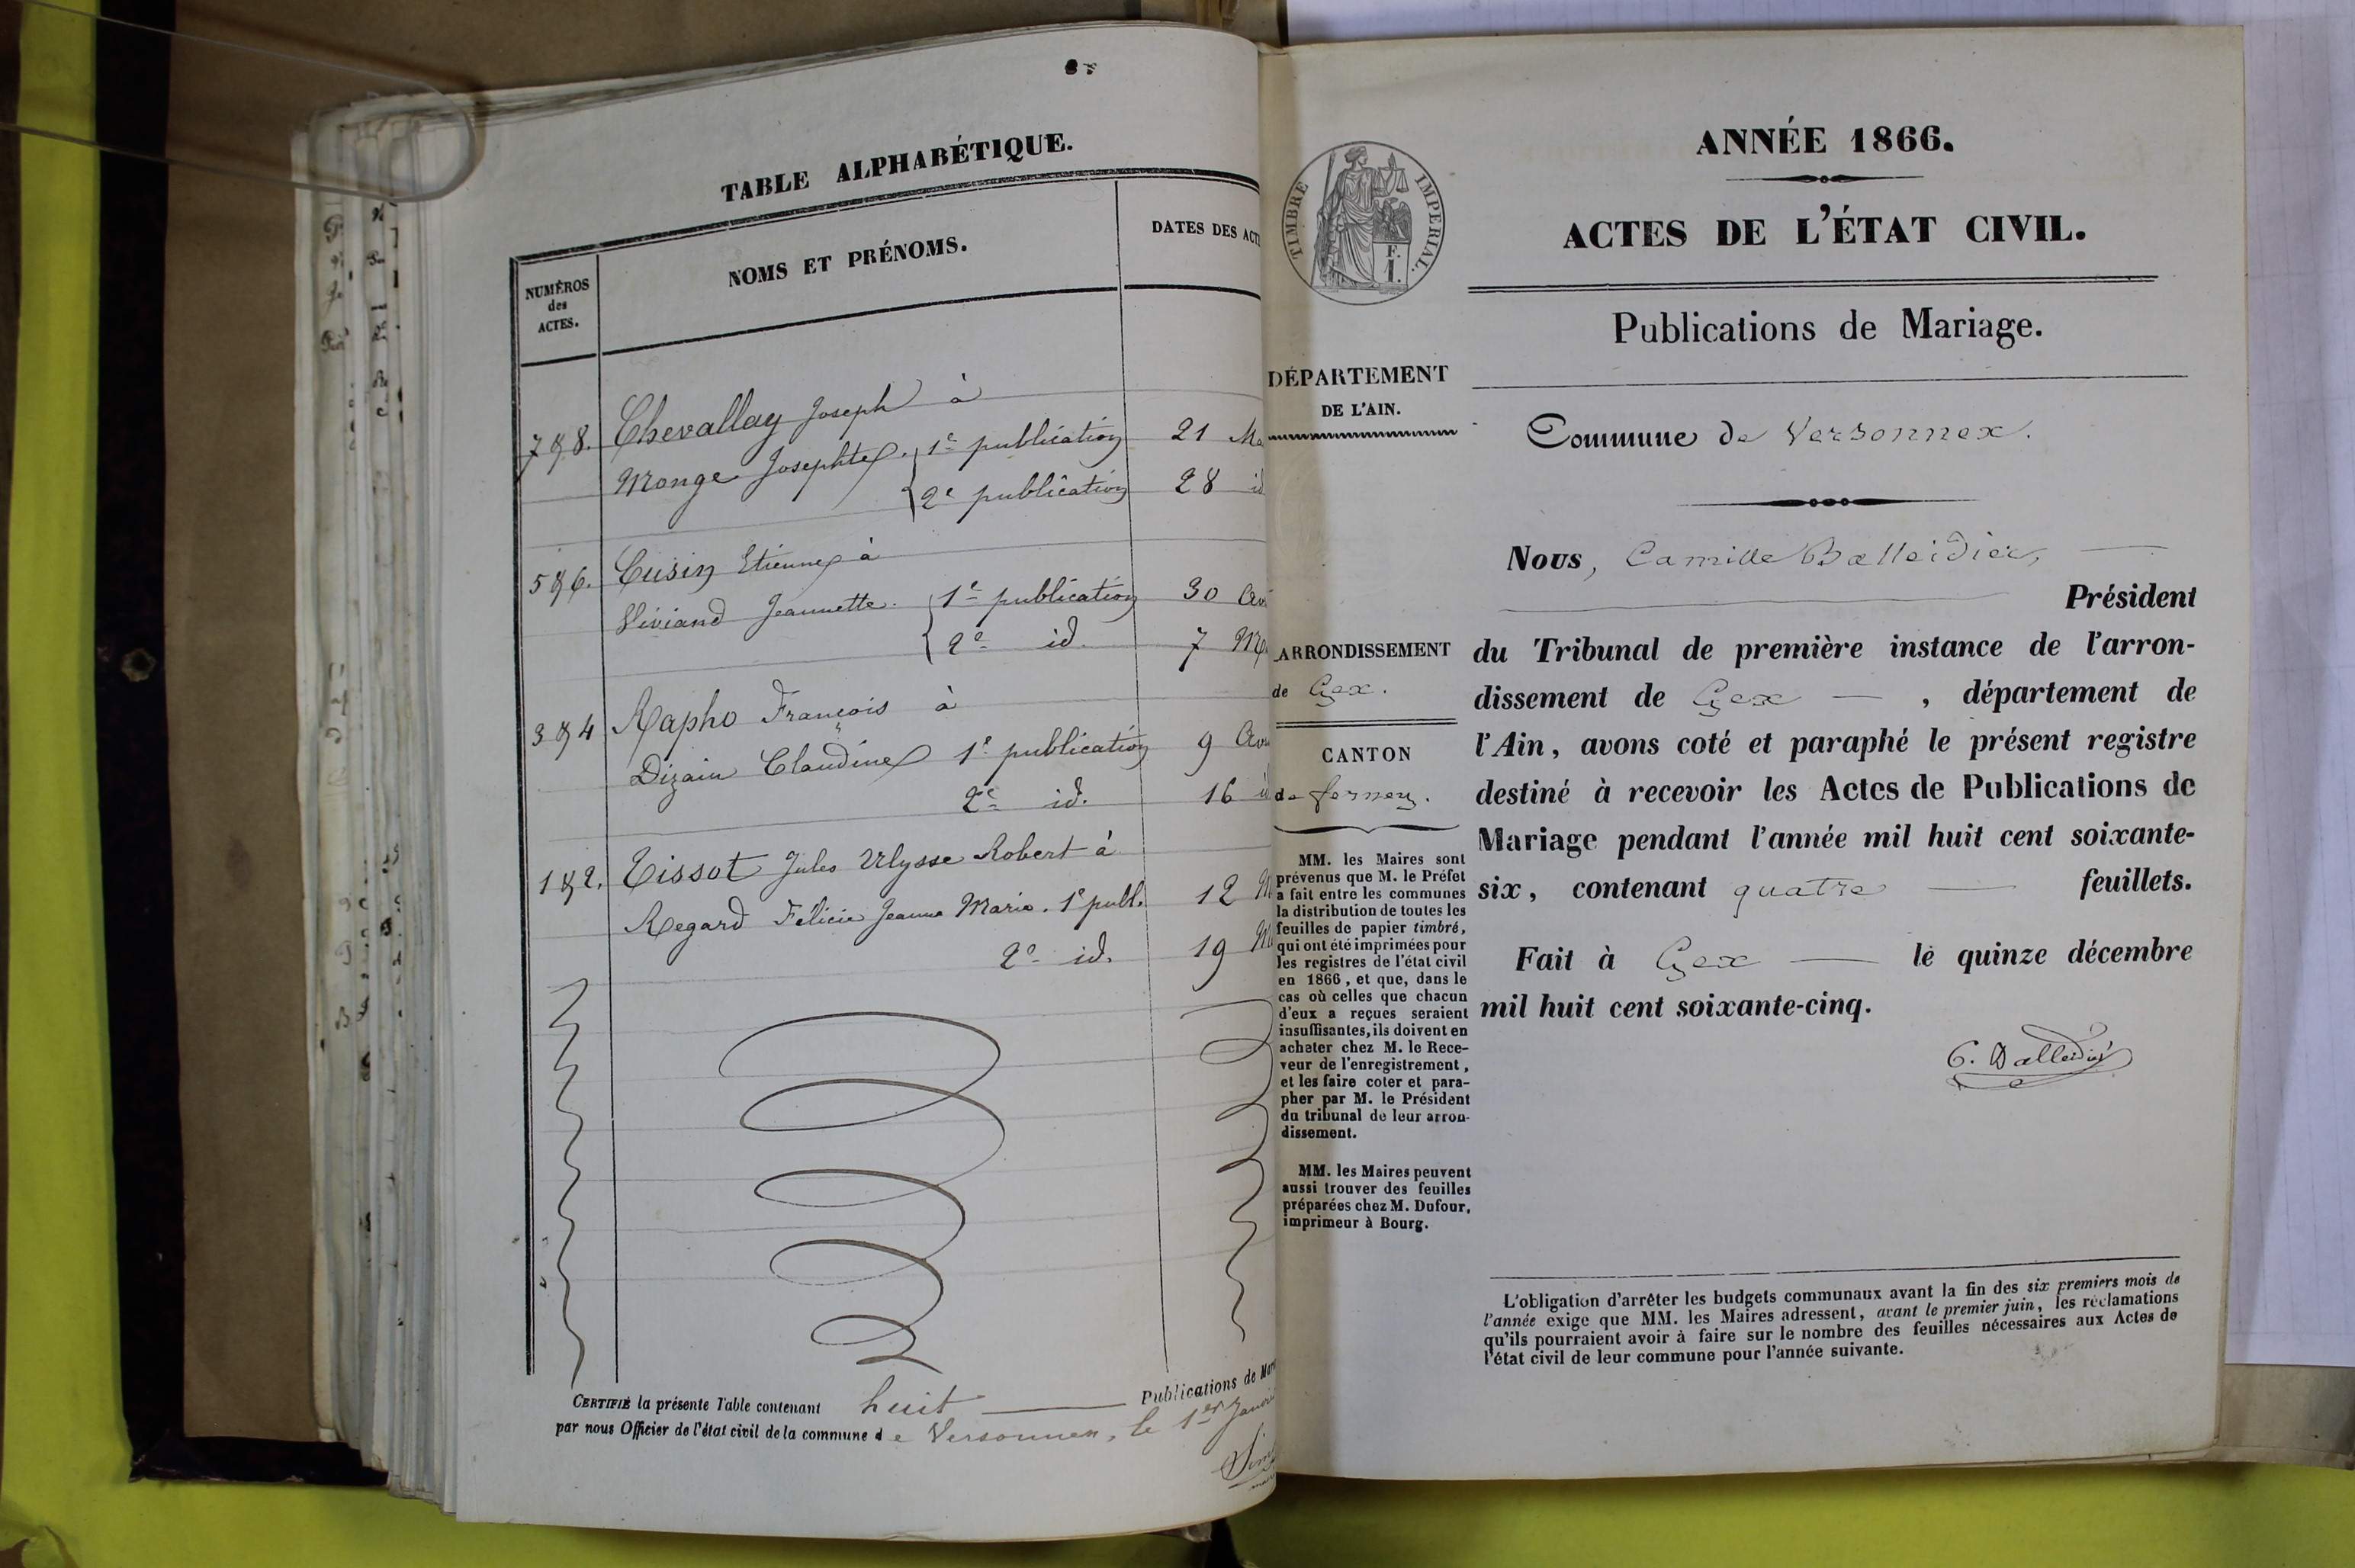 TABLE ALPHABÉTIQUE.
NUMÉROS
des
ACTES.
NOMS ET PRÉNOMS.
DATES DES ACT
Chevallay Joseph à
7 & 8.
Monge Josephte. 1e publication 21 Ma
2e publication 28 id
Cusin Etienne à
5 & 6.
Viviand Jeannette. 1e publication 30 Av
2e id. 7 Ma
Rapho François à
3 & 4
Dizain Claudine 1e publication 9 Av
2e id. 16 id
Tissot Jules Ulysse Robert à
1 & 2.
Regard Félicie Jeanne Marie. 1e publ. 12 M
2e id. 19 M
CERTIFIÉ la présente Table contenant huit Publications de Mar
par nous Officier de l'état civil de la commune de Versonnex, le 1er Janvi
TIMBRE IMPERIAL.
F.
1.
DÉPARTEMENT
DE L'AIN.
ARRONDISSEMENT
de Gex.
CANTON
de ferney.
MM. les Maires sont
prévenus que M. le Préfet
a fait entre les communes
la distribution de toutes les
feuilles de papier timbré,
qui ont été imprimées pour
les registres de l'état civil
en 1866, et que, dans le
cas où celles que chacun
d'eux a reçues seraient
insuffisantes, ils doivent en
acheter chez M. le Rece-
veur de l'enregistrement,
et les faire coter et para-
pher par M. le Président
du tribunal de leur arron-
dissement.
MM. les Maires peuvent
aussi trouver des feuilles
préparées chez M. Dufour,
imprimeur à Bourg.
ANNÉE 1866.
ACTES DE L'ÉTAT CIVIL.
Publications de Mariage.
Commune de Versonnex.
Nous, Camille Balleidier,
Président
du Tribunal de première instance de l'arron-
dissement de Gex — , département de
l'Ain, avons coté et paraphé le présent registre
destiné à recevoir les Actes de Publications de
Mariage pendant l'année mil huit cent soixante-
six, contenant quatre — feuillets.
Fait à Gex — le quinze décembre
mil huit cent soixante-cinq.
C. Balleidier
L'obligation d'arrêter les budgets communaux avant la fin des six premiers mois de
l'année exige que MM. les Maires adressent, avant le premier juin, les réclamations
qu'ils pourraient avoir à faire sur le nombre des feuilles nécessaires aux Actes de
l'état civil de leur commune pour l'année suivante.